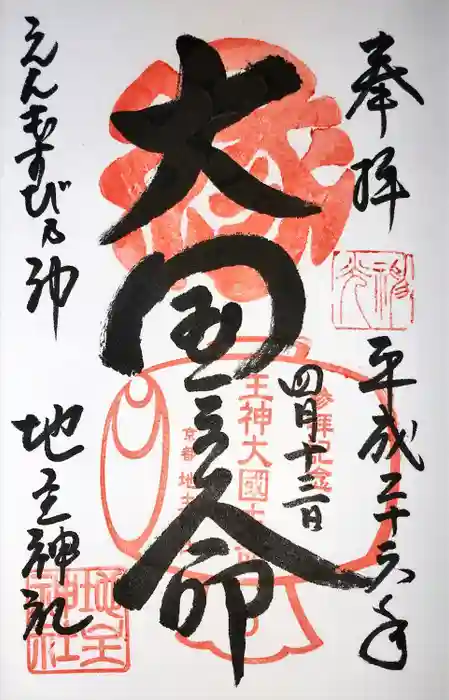 奉拝
平成二十六年
四月十三日
大国主命
えんむすび乃神
地主神社
参拝記念
主神大國主
京都 地主
地主神社